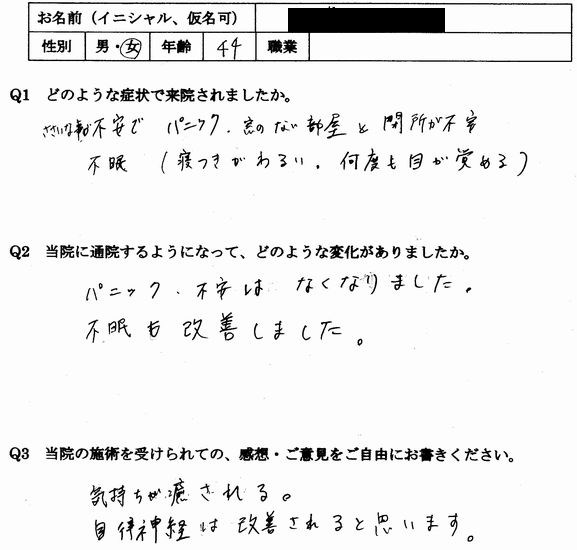 お名前（イニシャル、仮名可）
性別 男・女 年齢 44 職業
Q1 どのような症状で来院されましたか。
ささいな事が不安で パニック、窓のない部屋と閉所が不安
不眠（寝つきがわるい、何度も目が覚める）
Q2 当院に通院するようになって、どのような変化がありましたか。
パニック、不安は なくなりました。
不眠も改善しました。
Q3 当院の施術を受けられての、感想・ご意見をご自由にお書きください。
気持ちが癒される。
自律神経は改善されると思います。